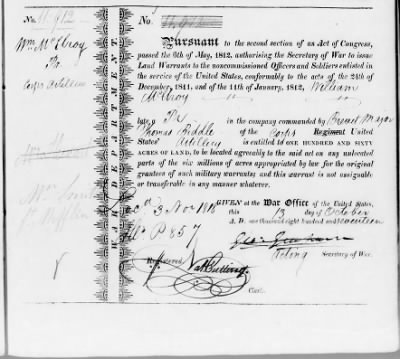 No. 11.912
Wm McElroy
Pr.
Corps Artillery
WAR DEPARTMENT
No.
Pursuant to the second section of an Act of Congress,
passed the 6th of May, 1812, authorising the Secretary of War to issue
Land Warrants to the noncommissioned Officers and Soldiers enlisted in
the service of the United States, conformably to the acts of the 24th
of December, 1811, and of the 11th of January, 1812, William
McElroy
late a Pr in the company commanded by Brevet Major
Thomas Biddle of the Corps Regiment United
States' Artillery is entitled to ONE HUNDRED AND SIXTY
ACRES OF LAND, to be located agreeably to the said act on any unlocated
parts of the six millions of acres appropriated by law for the original
grantees of such military warrants; and this warrant is not assignable
or transferable in any manner whatever.
GIVEN at the War Office of the United States,
3 Nov 1818 this 13 day of October
A. D. one thousand eight hundred and seventeen
857
Geo: Graham
Acting Secretary of War.
Registered, Nat Cutting
Clerk.